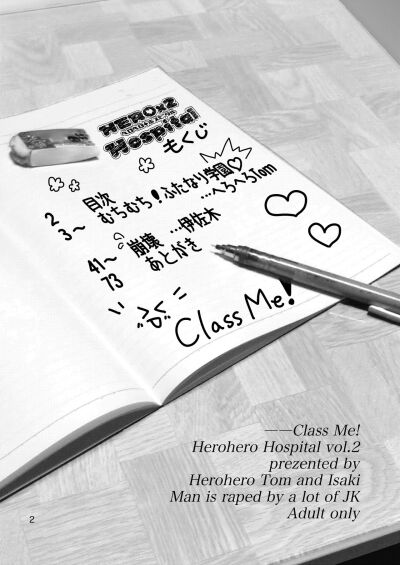 HERO×2
Hospital
もくじ
2 目次
3~ むちむち!ふたなり学園♡
…へろへろTom
41~ 崩壊 …伊佐木
73 あとがき
Class Me!
——Class Me!
Herohero Hospital vol.2
prezented by
Herohero Tom and Isaki
Man is raped by a lot of JK
Adult only
2